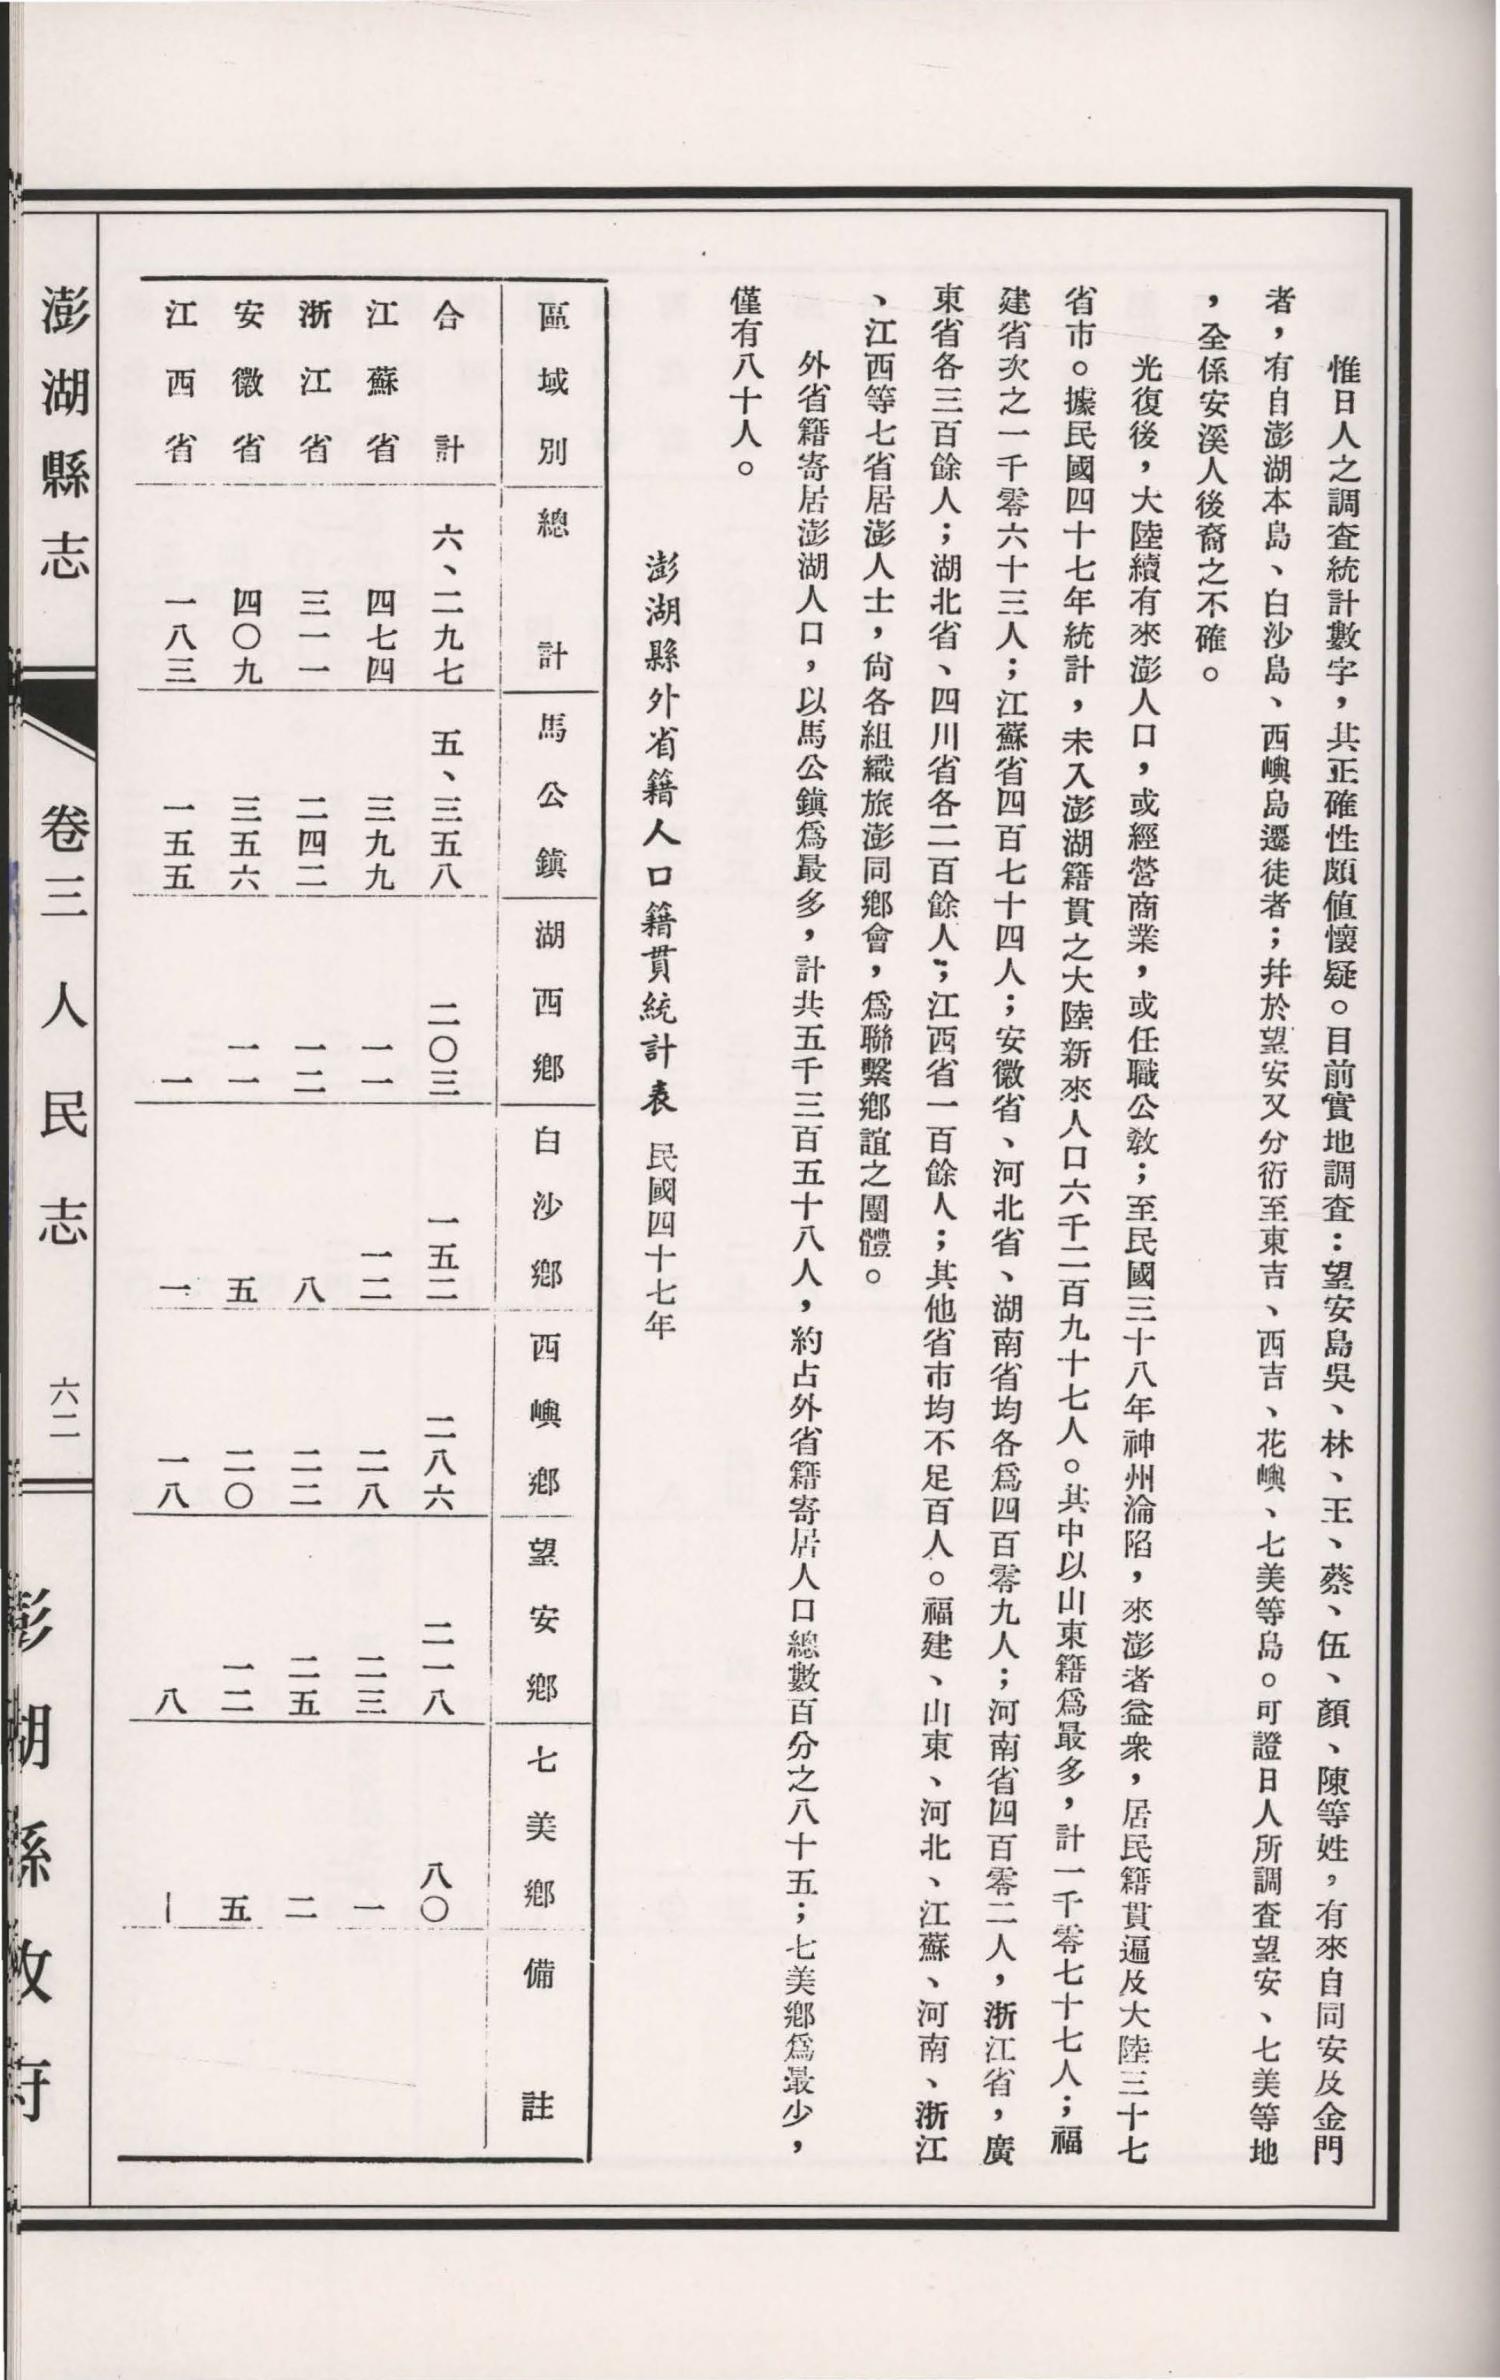 惟日人之調查統計數字，其正確性頗值懷疑。目前實地調查：望安島吳、林、王、蔡、伍、顏、陳等姓，有來自同安及金門
者，有自澎湖本島、白沙島、西嶼島遷徒者；幷於望安又分衍至東吉、西吉、花嶼、七美等島。可證日人所調查望安、七美等地
，全係安溪人後裔之不確。
光復後，大陸續有來澎人口，或經營商業，或任職公敎；至民國三十八年神州淪陷，來澎者益衆，居民籍貫遍及大陸三十七
省市。據民國四十七年統計，未入澎湖籍貫之大陸新來人口六千二百九十七人。其中以山東籍爲最多，計一千零七十七人；福
建省次之一千零六十三人；江蘇省四百七十四人；安徽省、河北省、湖南省均各爲四百零九人；河南省四百零二人，浙江省，廣
東省各三百餘人；湖北省、四川省各二百餘人；江西省一百餘人；其他省市均不足百人。福建、山東、河北、江蘇、河南、浙江
、江西等七省居澎人士，尙各組織旅澎同鄉會，爲聯繫鄉誼之團體。
外省籍寄居澎湖人口，以馬公鎮爲最多，計共五千三百五十八人，約占外省籍寄居人口總數百分之八十五；七美鄉爲最少，
僅有八十人。
澎湖縣外省籍人口籍貫統計表 民國四十七年
區域別 總計 馬公鎮 湖西鄉 白沙鄉 西嶼鄉 望安鄉 七美鄉 備註
合計 六、二九七 五、三五八 二〇三 一五二 二八六 二一八 八〇
江蘇省 四七四 三九九 一一 一二 二八 二三 一
浙江省 三一一 二四二 一二 八 二二 二五 二
安徽省 四〇九 三五六 一一 五 二〇 一二 五
江西省 一八三 一五五 一 一 一八 八 —
澎湖縣志 卷三人民志 六二 澎湖縣政府